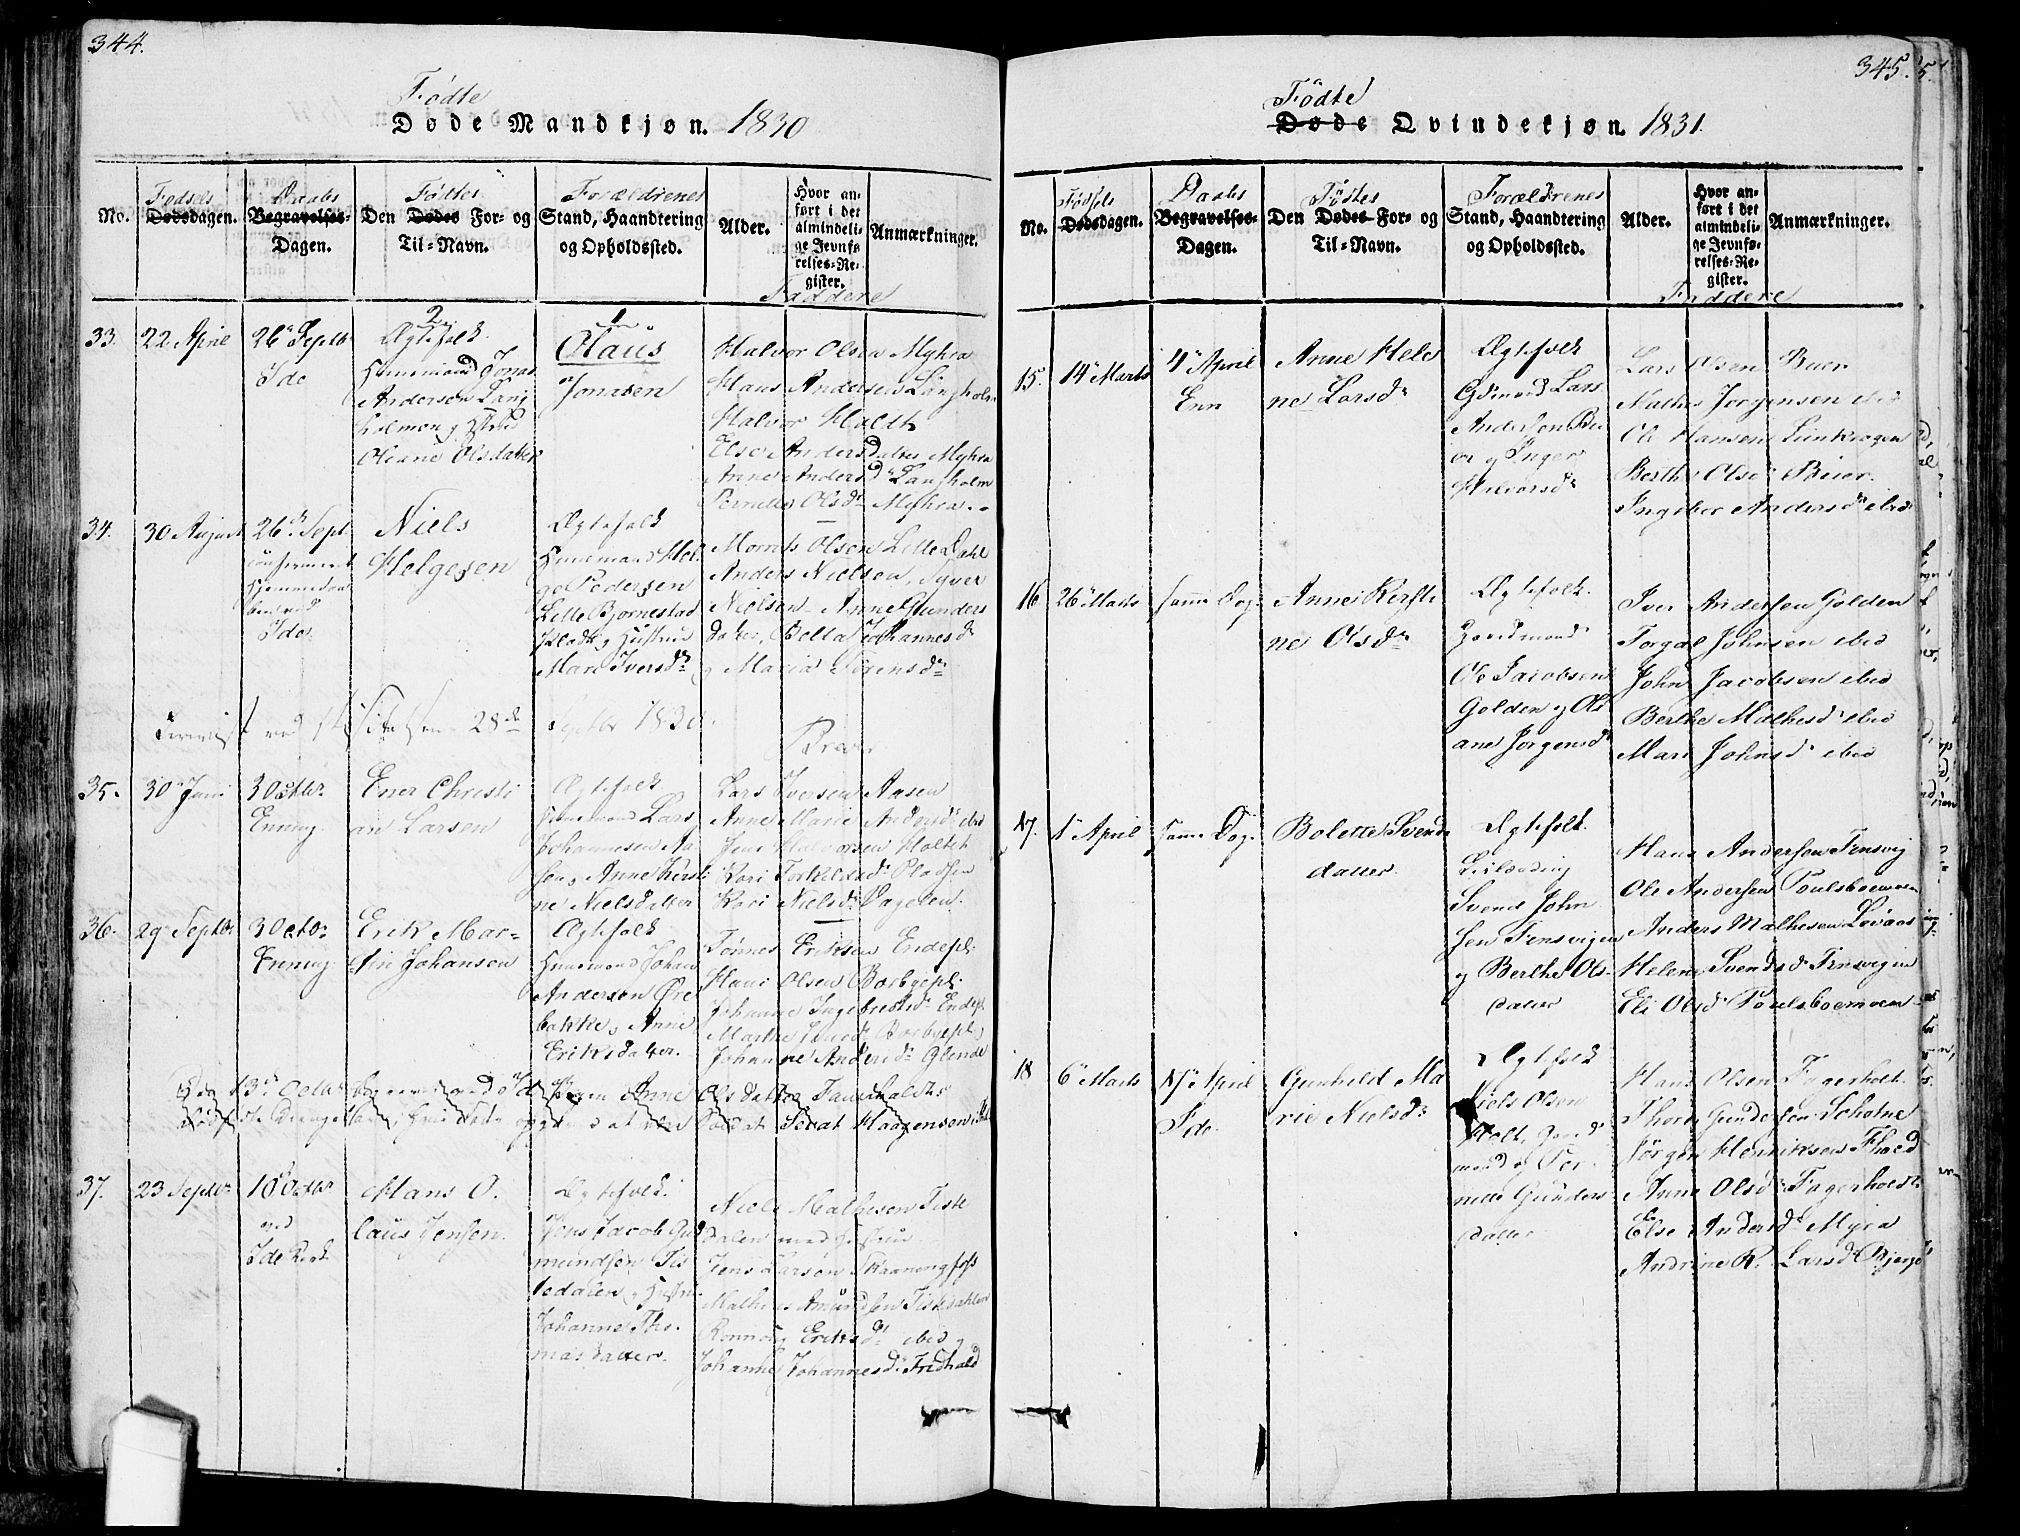 344.
Fødte
Døde Mandkjøn. 1830
No.
Fødsels
Dødsdagen.
Daabs
Begravelses-
Dagen.
Føttes
Den Dødes For- og
Til-Navn.
Forældrenes
Stand, Haandtering
og Opholdssted.
Alder.
Hvor an-
ført i det
almindeli-
ge Jevnfø-
relses-Re-
gister.
Anmærkninger.
Faddere
33.
22 April
26 Septbr
Ide
2
Ægtefolk
Huusmand Jonas
Andersen Lang
holmen og Hustrue
Oliane Olsdatter
1
Olaus
Jonasen
Halvor Olsen Myhra
Hans Andersen Langholm
Halvor Holdt
Else Andersdatter Myhra
Anne Andersdr Langholm
Pernelle Olsdr Myhra
34.
30 August
26de Sept.
confirmeret
Hjemmedaa
ben ved
Ide
Niels
Helgesen
Ægtefolk
Huusmand Hel
ge Pedersen
Lille Bjørnestad
Plads og Hustrue
Mari Iversdr
Morrits Olsen Lille Dahl
Anders Nielsen, Syver
Nielsen Anne Gunders
datter, Bolla Johannesdr
og Maria Sørensdr
28de Septbr 1830
35.
30 Juni
3 Octbr.
Enning
Ener Christi
an Larsen
Ægtefolk
Huusmand Lars
Johannesen Aa
sen og Anne Kersti
ne Nielsdatter
Lars Iversen Aasen
Anne Marie Andersdr ibid
Jens Halvorsen Holtet
Kari Torkelsdr Pladsen
Kari Nielsdr Bageren
36.
29 Septbr
3 Octbr
Enning
Erik Mar-
tin Johansen
Ægtefolk
Huusmand Johan
Andersen Øre
bakke og Anne
Eriksdatter.
Tønnes Eriksen Endepl.
Hans Olsen Borbyepl.
Johanne Ingebretsdr Endepl
Marthe Borbyepl
Johanne Andersdr Glende
Den 13de Octbr Anne Olsdatter
Soldat Sivat Haagensen
37.
23 Septbr
10 Octbr
ved
Ide Kirk
Hans O.
laus Jensen.
Ægtefolk.
Jens Jacob Gud
mundsen Tis
tedalen og Hustrue
Johanne Tho-
masdatter.
Niels Mathesen Tiste
dalen med Hustrue
Jens Larsen Skaaningfoss
Mathias Amundsen Tistedahlen
Ronnoug Eriksdr ibid og
Johanne Johannesdr Fredhald
345.
Fødte
Døde Qvindekjøn 1831.
No.
Fødsels
Dødsdagen.
Daabs
Begravelses-
Dagen.
Føttes
Den Dødes For- og
Til-Navn.
Forældrenes
Stand, Haandtering
og Opholdssted.
Alder.
Hvor an-
ført i det
almindeli-
ge Jevnfø-
relses-Re-
gister.
Anmærkninger.
Faddere
15.
14 Marts
4 April
Enn
Anne Hele
ne Larsdr
Ægtefolk
Gaardmand Lars
Andersen Bu
er og Inger
Halvorsdr
Lars Olsen Buer
Mathis Jørgensen ibid
Ole Hansen
Berthe Olsdr Buer.
Ingebor Andersdr ibid
16
26 Marts
samme Dag
Anne Kersti
ne Olsdr
Ægtefolk.
Gaardmand
Ole Jacobsen
Golden og Oli
ane Jørgensdr
Iver Andersen Golden
Torgal Johnsen ibid
John Jacobsen ibid
Berthe Mathesdr ibid
Mari Johnsdr ibid
17.
1 April
samme Dag.
Bolette Svends
datter.
Ægtefolk.
Leilænding
Svend John
sen Fensvigen
og Berthe Ols-
datter
Hans Andersen Fensvig
Ole Andersen Poulsboemoen
Anders Mathesen Levaas
Helene Svendsdr Fensvigen
Eli Olsdr Poulsboemoen
18
6 Marts
17 April
Ide.
Gunhild Ma
rie Nielsdr
Ægtefolk
Niels Olsen
Holt, Gaard
mand og Per
nille Gunders
datter
Hans Olsen Fagerholt.
Thore Gundersen Schotne
Jørgen Henriksen
Anne Olsdr Fagerholdt
Else Andersdr Myra
Andrine K. Larsdr Bjerge